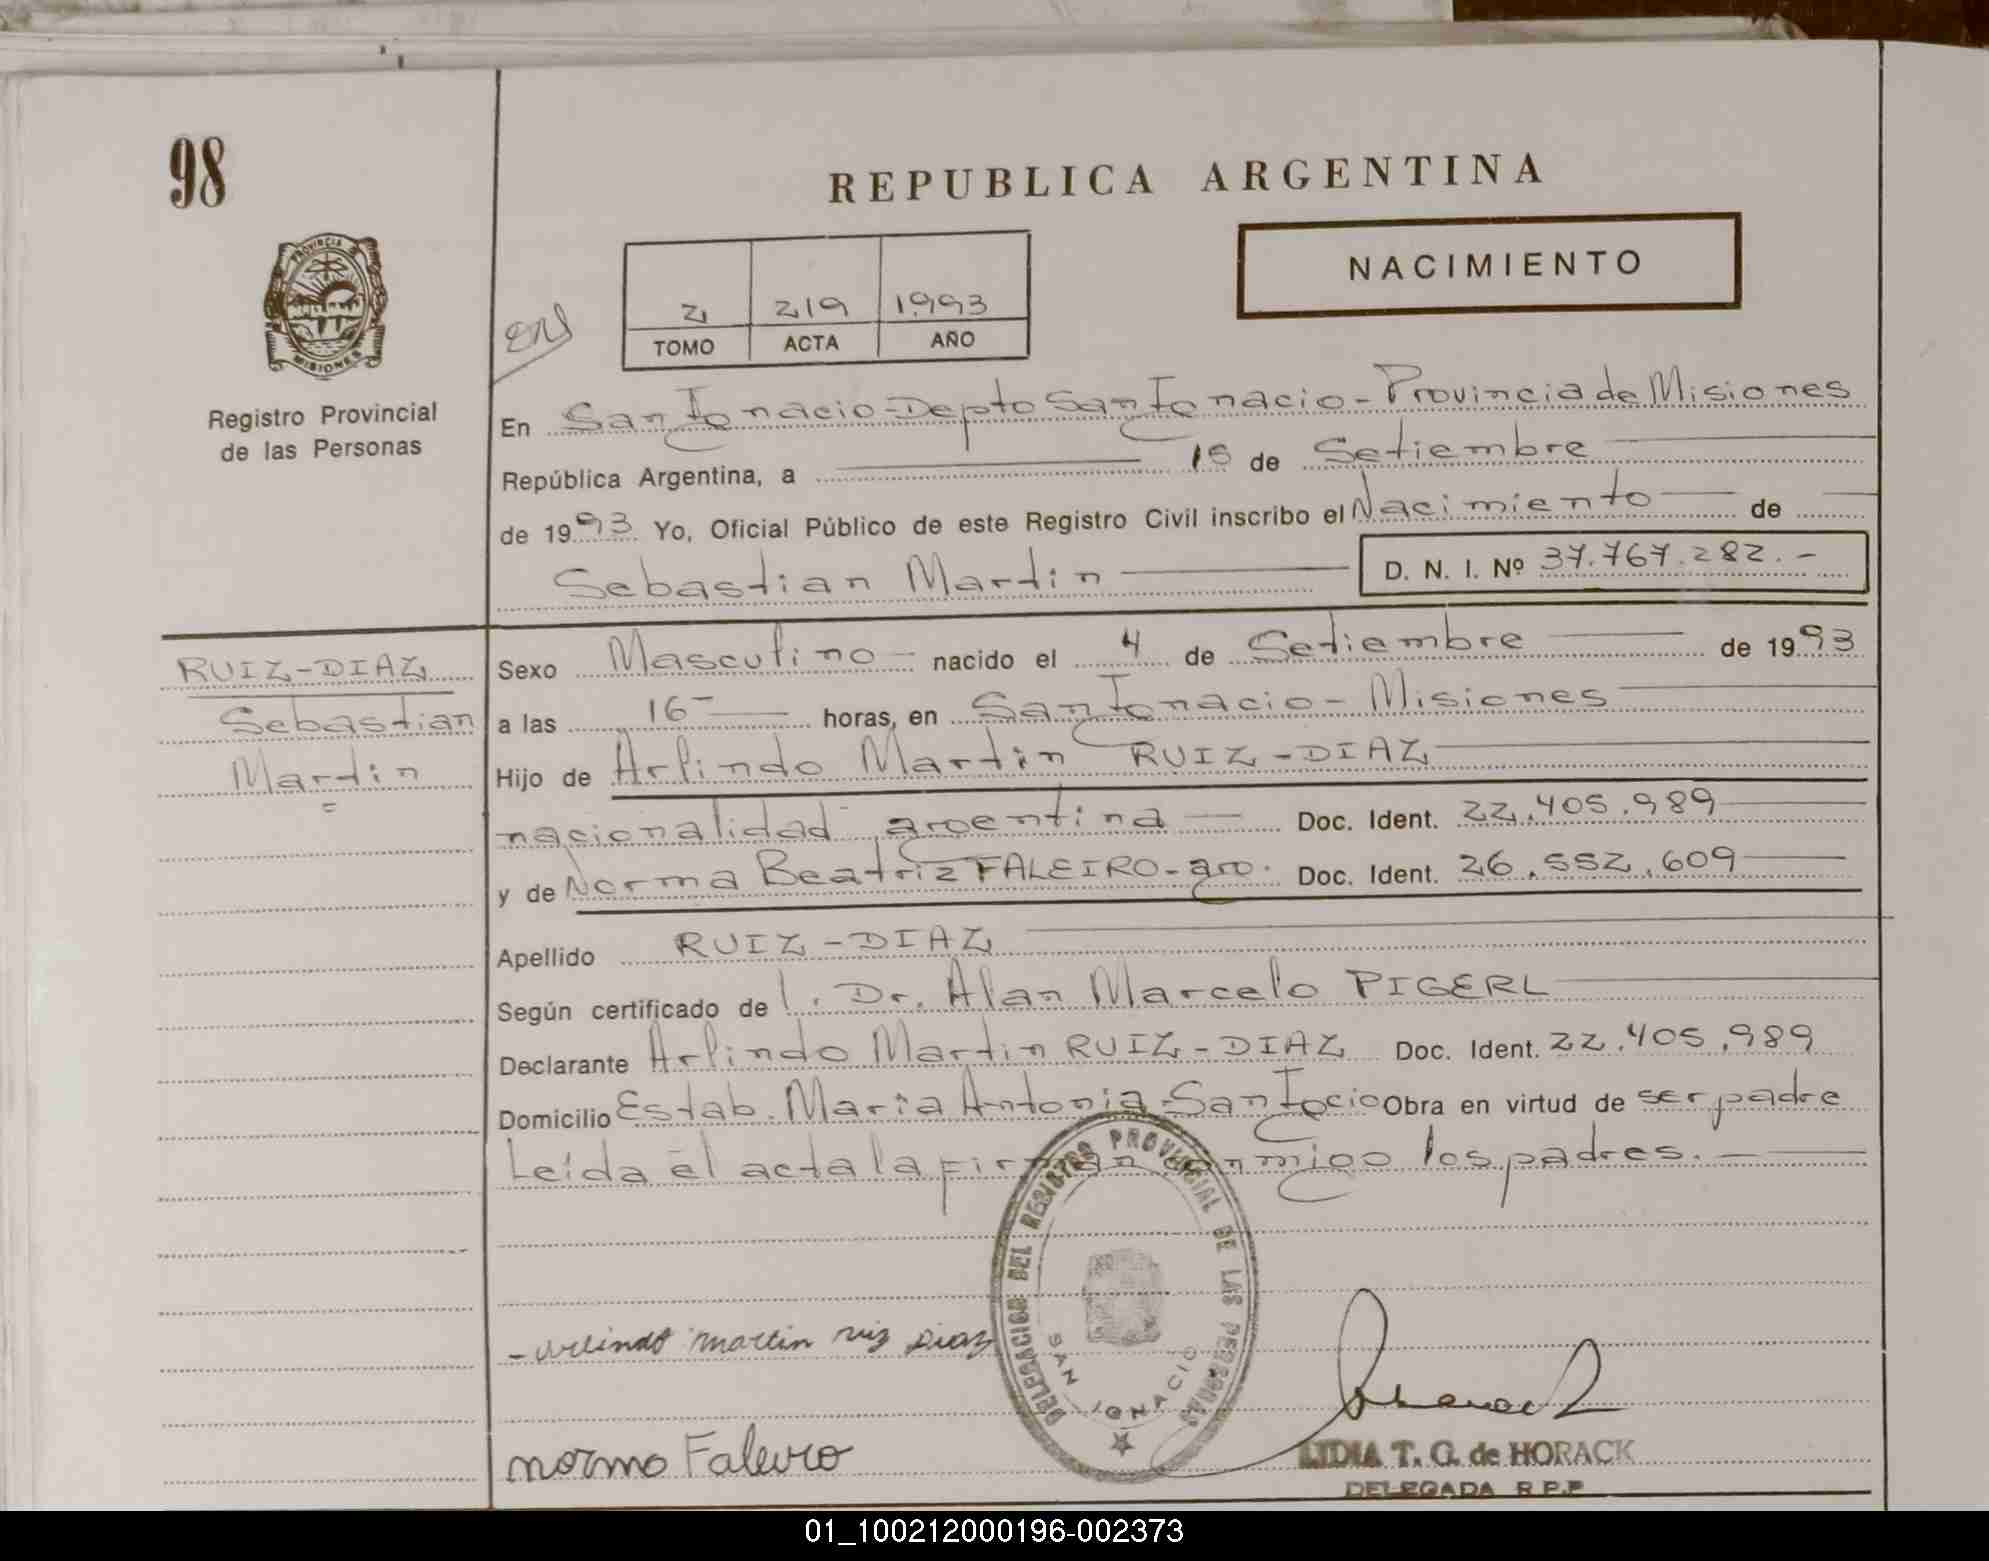 98
REPUBLICA ARGENTINA
NACIMIENTO
2 219 1993
TOMO ACTA AÑO
PROVINCIA DE
MISIONES
Registro Provincial
de las Personas
En San Ignacio-Depto San Ignacio-Provincia de Misiones
República Argentina, a 15 de Setiembre
de 1993 Yo, Oficial Público de este Registro Civil inscribo el Nacimiento de
Sebastian Martin D. N. I. Nº 37.767.282.-
RUIZ-DIAZ
Sebastian
Martin
Sexo Masculino nacido el 4 de Setiembre de 1993
a las 16 horas, en San Ignacio-Misiones
Hijo de Arlindo Martin RUIZ-DIAZ
nacionalidad argentina Doc. Ident. 22.405.989
y de Norma Beatriz FALEIRO-arg. Doc. Ident. 26.552.609
Apellido RUIZ-DIAZ
Según certificado de l. Dr. Alan Marcelo PIGERL
Declarante Arlindo Martin RUIZ-DIAZ Doc. Ident. 22.405.989
Domicilio Estab. Maria Antonia-San Igcio Obra en virtud de ser padre
Leída el acta la firman conmigo los padres.
DELEGACION DEL REGISTRO PROVINCIAL DE LAS PERSONAS
SAN IGNACIO
-arlindo martin ruiz Diaz
norma Faleiro
LIDIA T. G. de HORACK
DELEGADA R.P.P
01_100212000196-002373